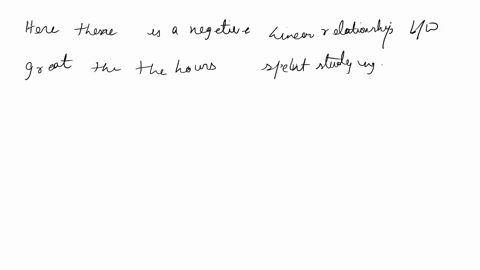 Here there is a negetive linear relationship b/w
great the the hours spent studying.